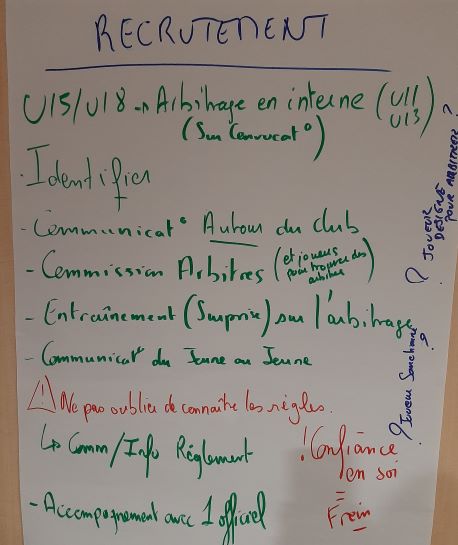 RECRUTEMENT
U15/U18 → Arbitrage en interne (U11
U13)
(Sur Convocat°)
· Identifier
- Communicat° Autour du club
- Commission Arbitres (et joueurs
pour trouver des
arbitres)
- Entraînement (Surprise) sur l'arbitrage
- Communicat° du Jeune au Jeune
⚠ Ne pas oublier de connaître les règles.
↳ Comm/Info Règlement
- Accompagnement avec 1 officiel
! Confiance
en soi
=
Frein
? Joueur Sanctionné ?
? JOUEUR
DÉSIGNÉ
POUR ARBITRER ?